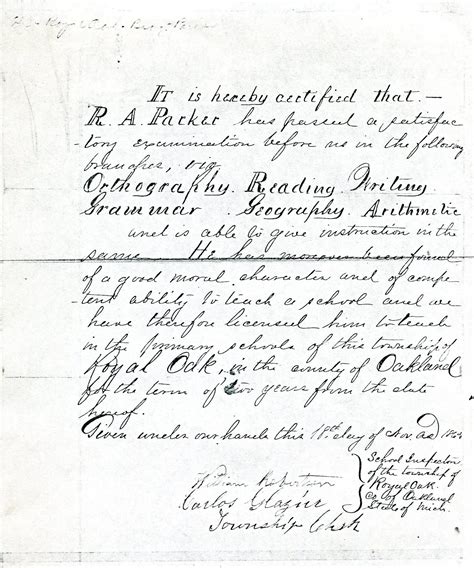 It is hereby certified that. —
R. A. Parker has passed a satisfac
-tory examination before us in the following
branches, viz
Orthography. Reading. Writing.
Grammar. Geography. Arithmetic
and is able to give instruction in the
same. He has moreover been found
of a good moral character and of compe
tent ability to teach a school and we
have therefore licensed him to teach
in the primary schools of this township of
Royal Oak, in the county of Oakland
for the term of two years from the date
hereof.
Given under our hands this 18th day of Nov AD
William Robertson
Carlos Glazier
Township Clerk
School Inspectors
of the township of
Royal Oak.
Co of Oakland
State of Mich.